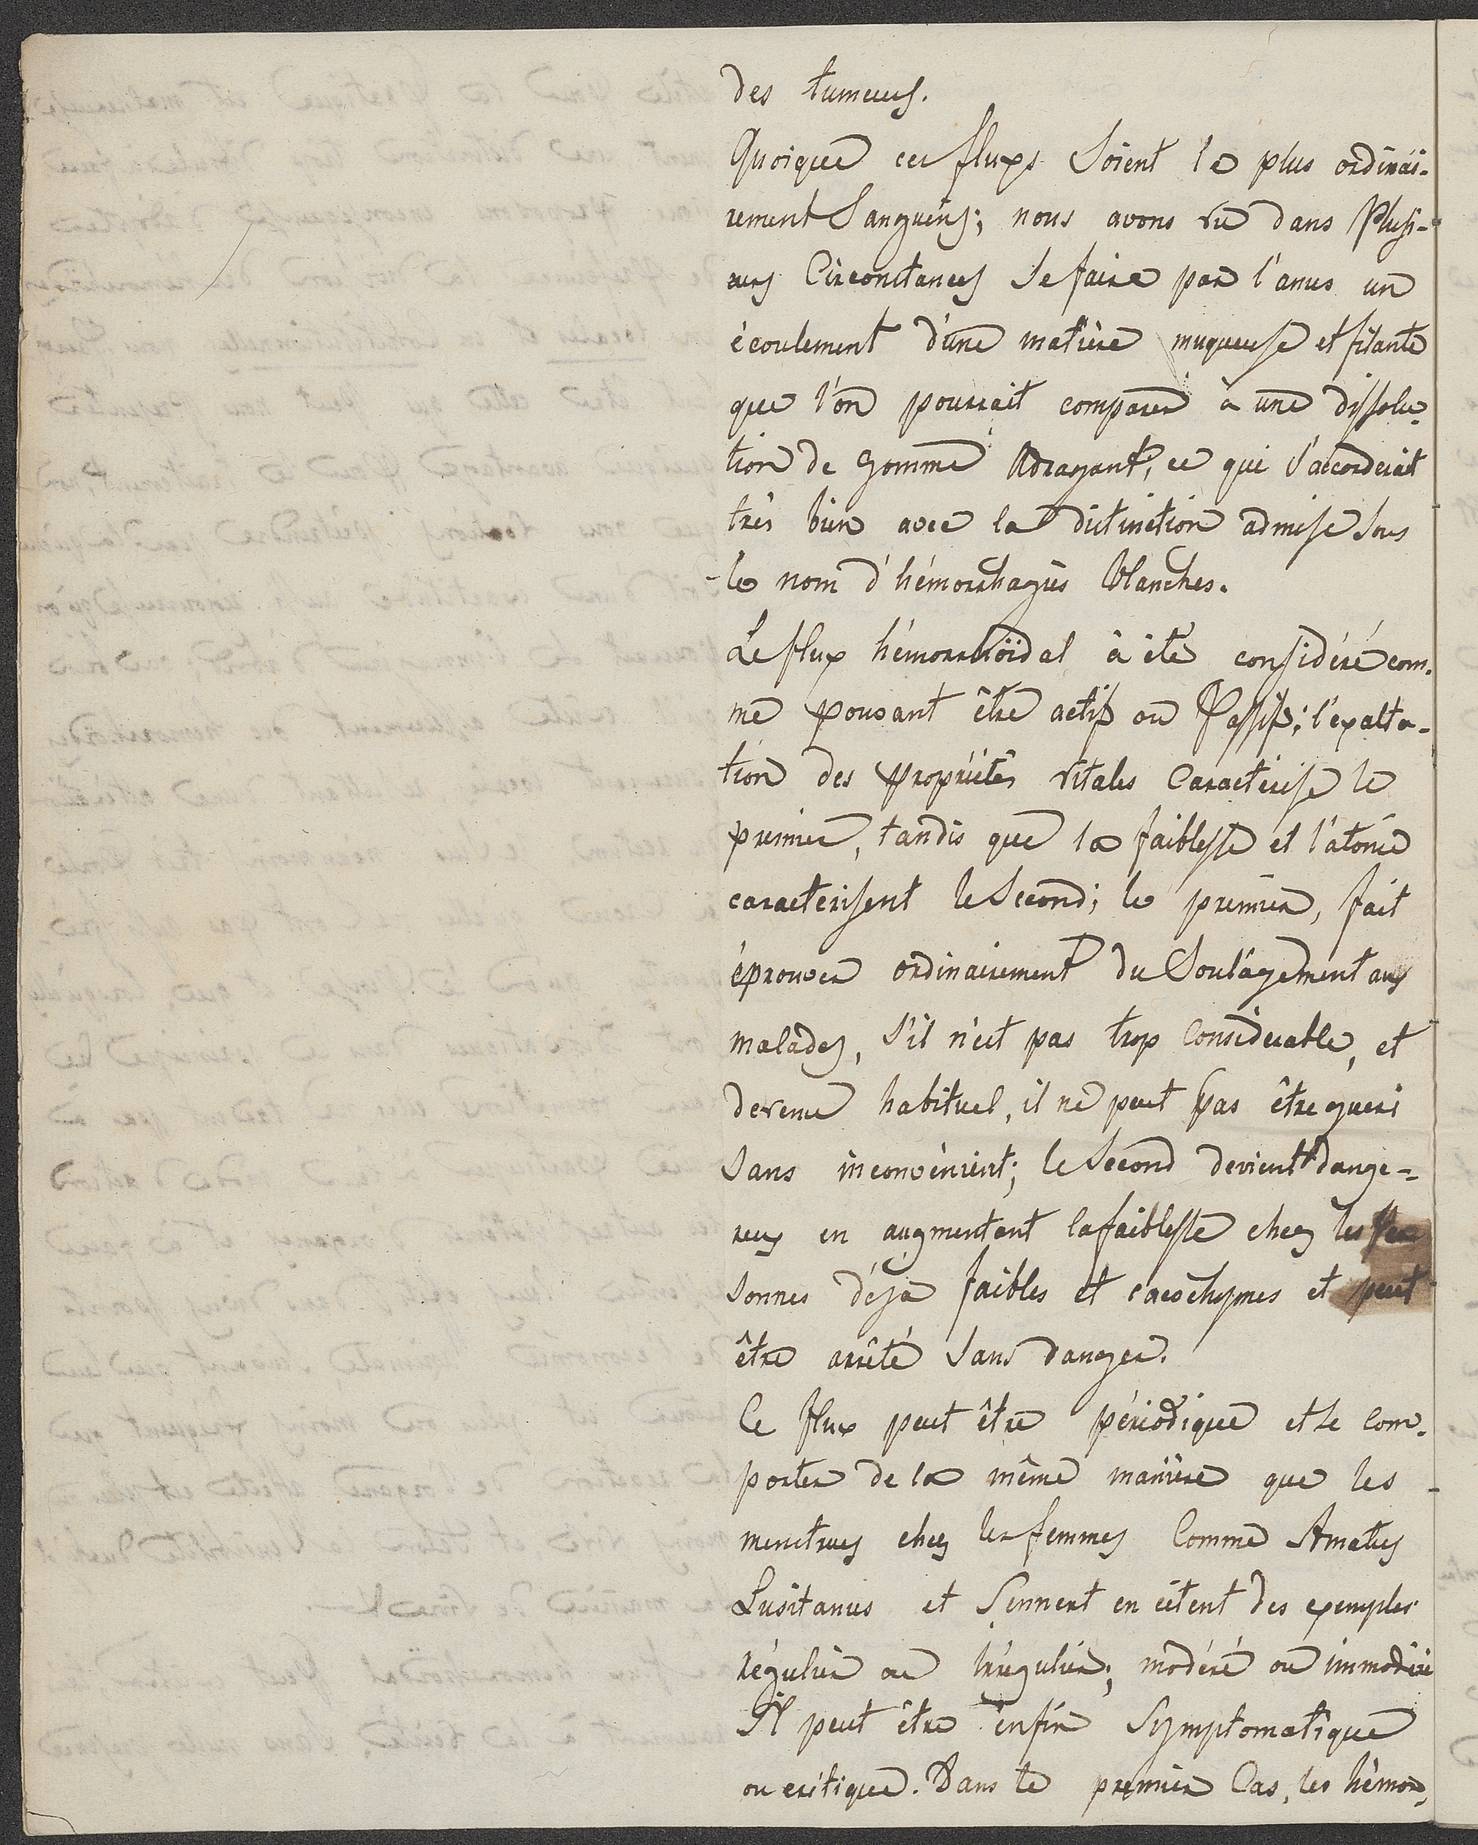 des tumeurs.
Quoique ces fluxs soient le plus ordinai-
rement Sanguins; nous avons vu dans Plusi-
eurs Circonstances se faire par l'anus un
écoulement d'une matière muqueuse et filante
que l'on pourrait comparer à une dissolu-
tion de gomme Adragant, ce qui s'accorderait
très bien avec la distinction admise sous
le nom d'hémorrhagies blanches.
Le flux hémorrhoïdal à été considéré com-
me pouvant être actif ou Passif; l'exalta-
tion des propriétés vitales Caractérise le
premier, tandis que la faiblesse et l'atonie
caracterisent le Second; le premier, fait
éprouver ordinairement du Soulagement aux
malades, s'il n'est pas trop Considerable, et
devenu habituel, il ne peut pas être gueri
sans inconvénient; le Second devient dange-
reux en augmentant la faiblesse chez les per
sonnes déja faibles et cacochymes et peut
être arrêté sans danger.
Ce flux peut être périodique et se com-
porter de la même manière que les
menstrues chez les femmes Comme Amatus
Lusitanus et Sennert en citent des exemples
régulier ou irrégulier; modéré ou immodéré
Il peut être enfin Symptomatique
ou critique. Dans le premier Cas, les hémor-